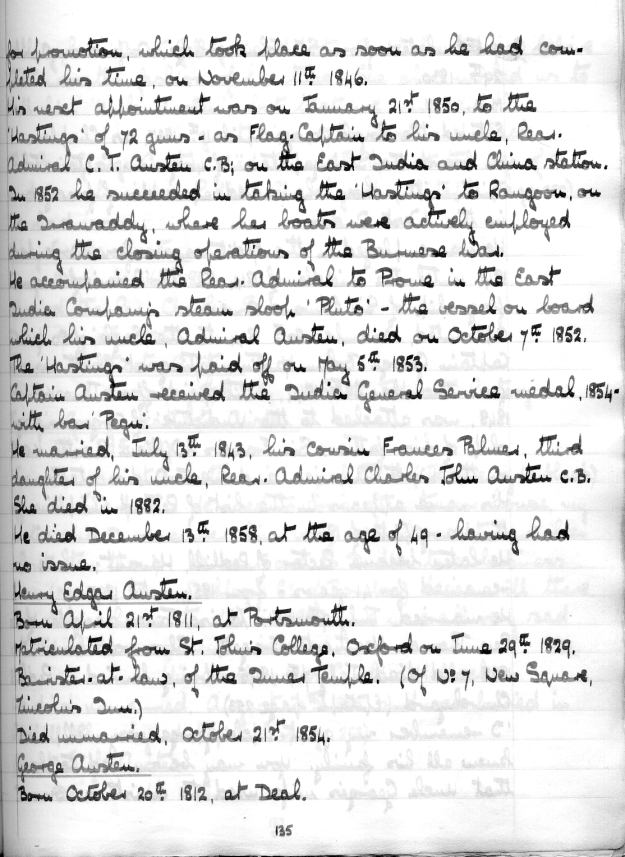 for promotion, which took place as soon as he had com-
pleted his time, on November 11th 1846.
His next appointment was on January 21st 1850, to the
'Hastings' of 72 guns - as Flag-Captain to his uncle, Rear-
Admiral C. J. Austen C.B; on the East India and China station.
In 1852 he succeeded in taking the 'Hastings' to Rangoon, on
the Irrawaddy, where her boats were actively employed
during the closing operations of the Burmese War.
He accompanied the Rear-Admiral to Prome in the East
India Company's steam sloop 'Pluto' - the vessel on board
which his uncle, Admiral Austen, died on October 7th 1852.
The 'Hastings' was paid off on May 5th 1853.
Captain Austen received the India General Service medal, 1854-
with bar 'Pegu'.
He married, July 13th 1843, his cousin Frances Palmer, third
daughter of his uncle, Rear-Admiral Charles John Austen C.B.
She died in 1882.
He died December 13th 1858, at the age of 49 - having had
no issue.
Henry Edgar Austen.
Born April 21st 1811, at Portsmouth.
Matriculated from St. John's College, Oxford on June 29th 1829.
Barrister-at-law, of the Inner Temple. (Of No 7, New Square,
Lincoln's Inn.)
Died unmarried, October 21st 1854.
George Austen.
Born October 20th 1812, at Deal.
135